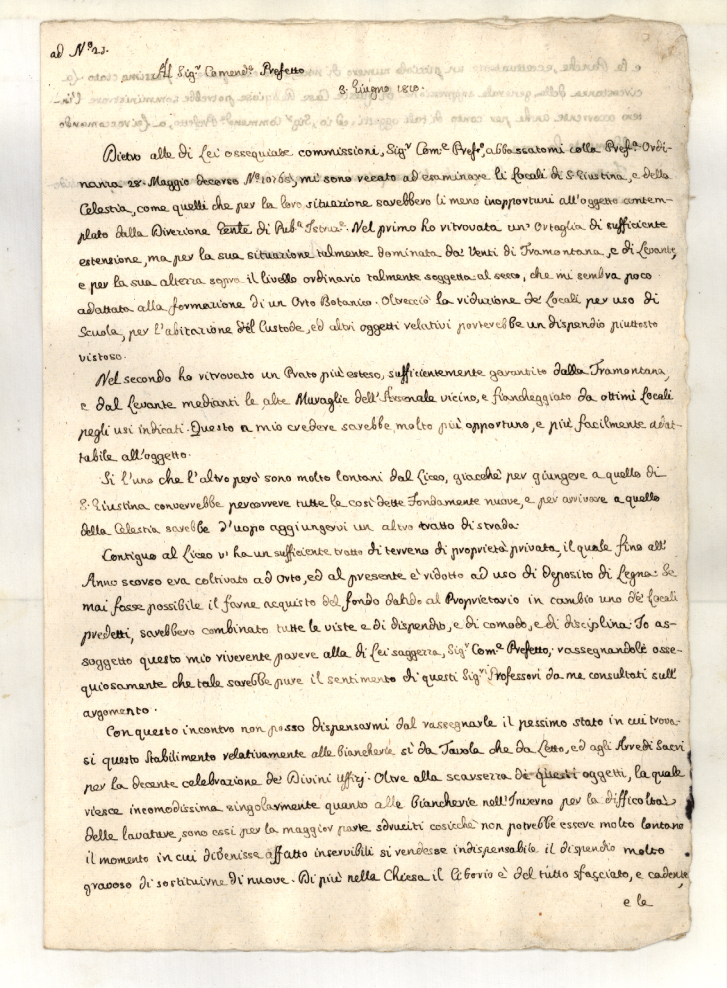 ad Nº 23.
Al Sigr Comendr Prefetto
8. Giugno 1810.
Dietro alle di Lei ossequiate commissioni, Sigr Come Prefo, abbassatomi colla Prefa Ordi-
nanza 28. Maggio decorso Nº mi sono recato ad esaminare li Locali di S. Giustina, e della
Celestia, come quelli che per la loro situazione sarebbero li meno inopportuni all'oggetto contem-
plato dalla Direzione Genle di Puba Istruze. Nel primo ho ritrovata un' Ortaglia di sufficiente
estensione, ma per la sua situazione talmente dominata da' Venti di Tramontana, e di Levante,
e per la sua altezza sopra il livello ordinario talmente soggetta al secco, che mi sembra poco
adattata alla formazione di un Orto Botanico. Oltrecciò la riduzione de' Locali per uso di
Scuola, per l'abitazione del Custode, ed altri oggetti relativi porterebbe un dispendio piuttosto
vistoso.
Nel secondo ho ritrovato un Prato più esteso, sufficientemente garantito dalla Tramontana,
e dal Levante medianti le alte Muraglie dell'Arsenale vicino, e fiancheggiato da ottimi Locali
pegli usi indicati. Questo a mio credere sarebbe molto più opportuno, e più facilmente adat-
tabile all'oggetto.
Sì l'uno che l'altro però sono molto lontani dal Liceo, giacchè per giungere a quello di
S. Giustina converrebbe percorrere tutte le così dette Fondamente nuove, e per arrivare a quello
della Celestia sarebbe d'uopo aggiungervi un altro tratto di strada.
Contiguo al Liceo v'ha un sufficiente tratto di terreno di proprietà privata, il quale fino all'
Anno scorso era coltivato ad Orto, ed al presente è ridotto ad uso di deposito di Legna. Se
mai fosse possibile il farne acquisto del fondo dando al Proprietario in cambio uno de' Locali
predetti, sarebbero combinato tutte le viste e di dispendio, e di comodo, e di disciplina. Io as-
soggetto questo mio riverente parere alla di Lei saggezza, Sigr Come Prefetto, rassegnandole osse-
quiosamente che tale sarebbe pure il sentimento di questi Sigri Professori da me consultati sull'
argomento.
Con questo incontro non posso dispensarmi dal rassegnarle il pessimo stato in cui trova-
si questo Stabilimento relativamente alle biancherie sì da Tavola che da Letto, ed agli Arredi Sacri
per la decente celebrazione de' Divini Uffizj. Oltre alla scarsezza di questi oggetti, la quale
riesce incomodissima singolarmente quanto alle biancherie nell'Inverno per la difficoltà
delle lavature, sono essi per la maggior parte sdruciti cosicchè non potrebbe essere molto lontano
il momento in cui divenisse affatto inservibili si rendesse indispensabile il dispendio molto
gravoso di sostituirne di nuove. Di più nella Chiesa il Ciborio è del tutto sfasciato, e cadente,
e la